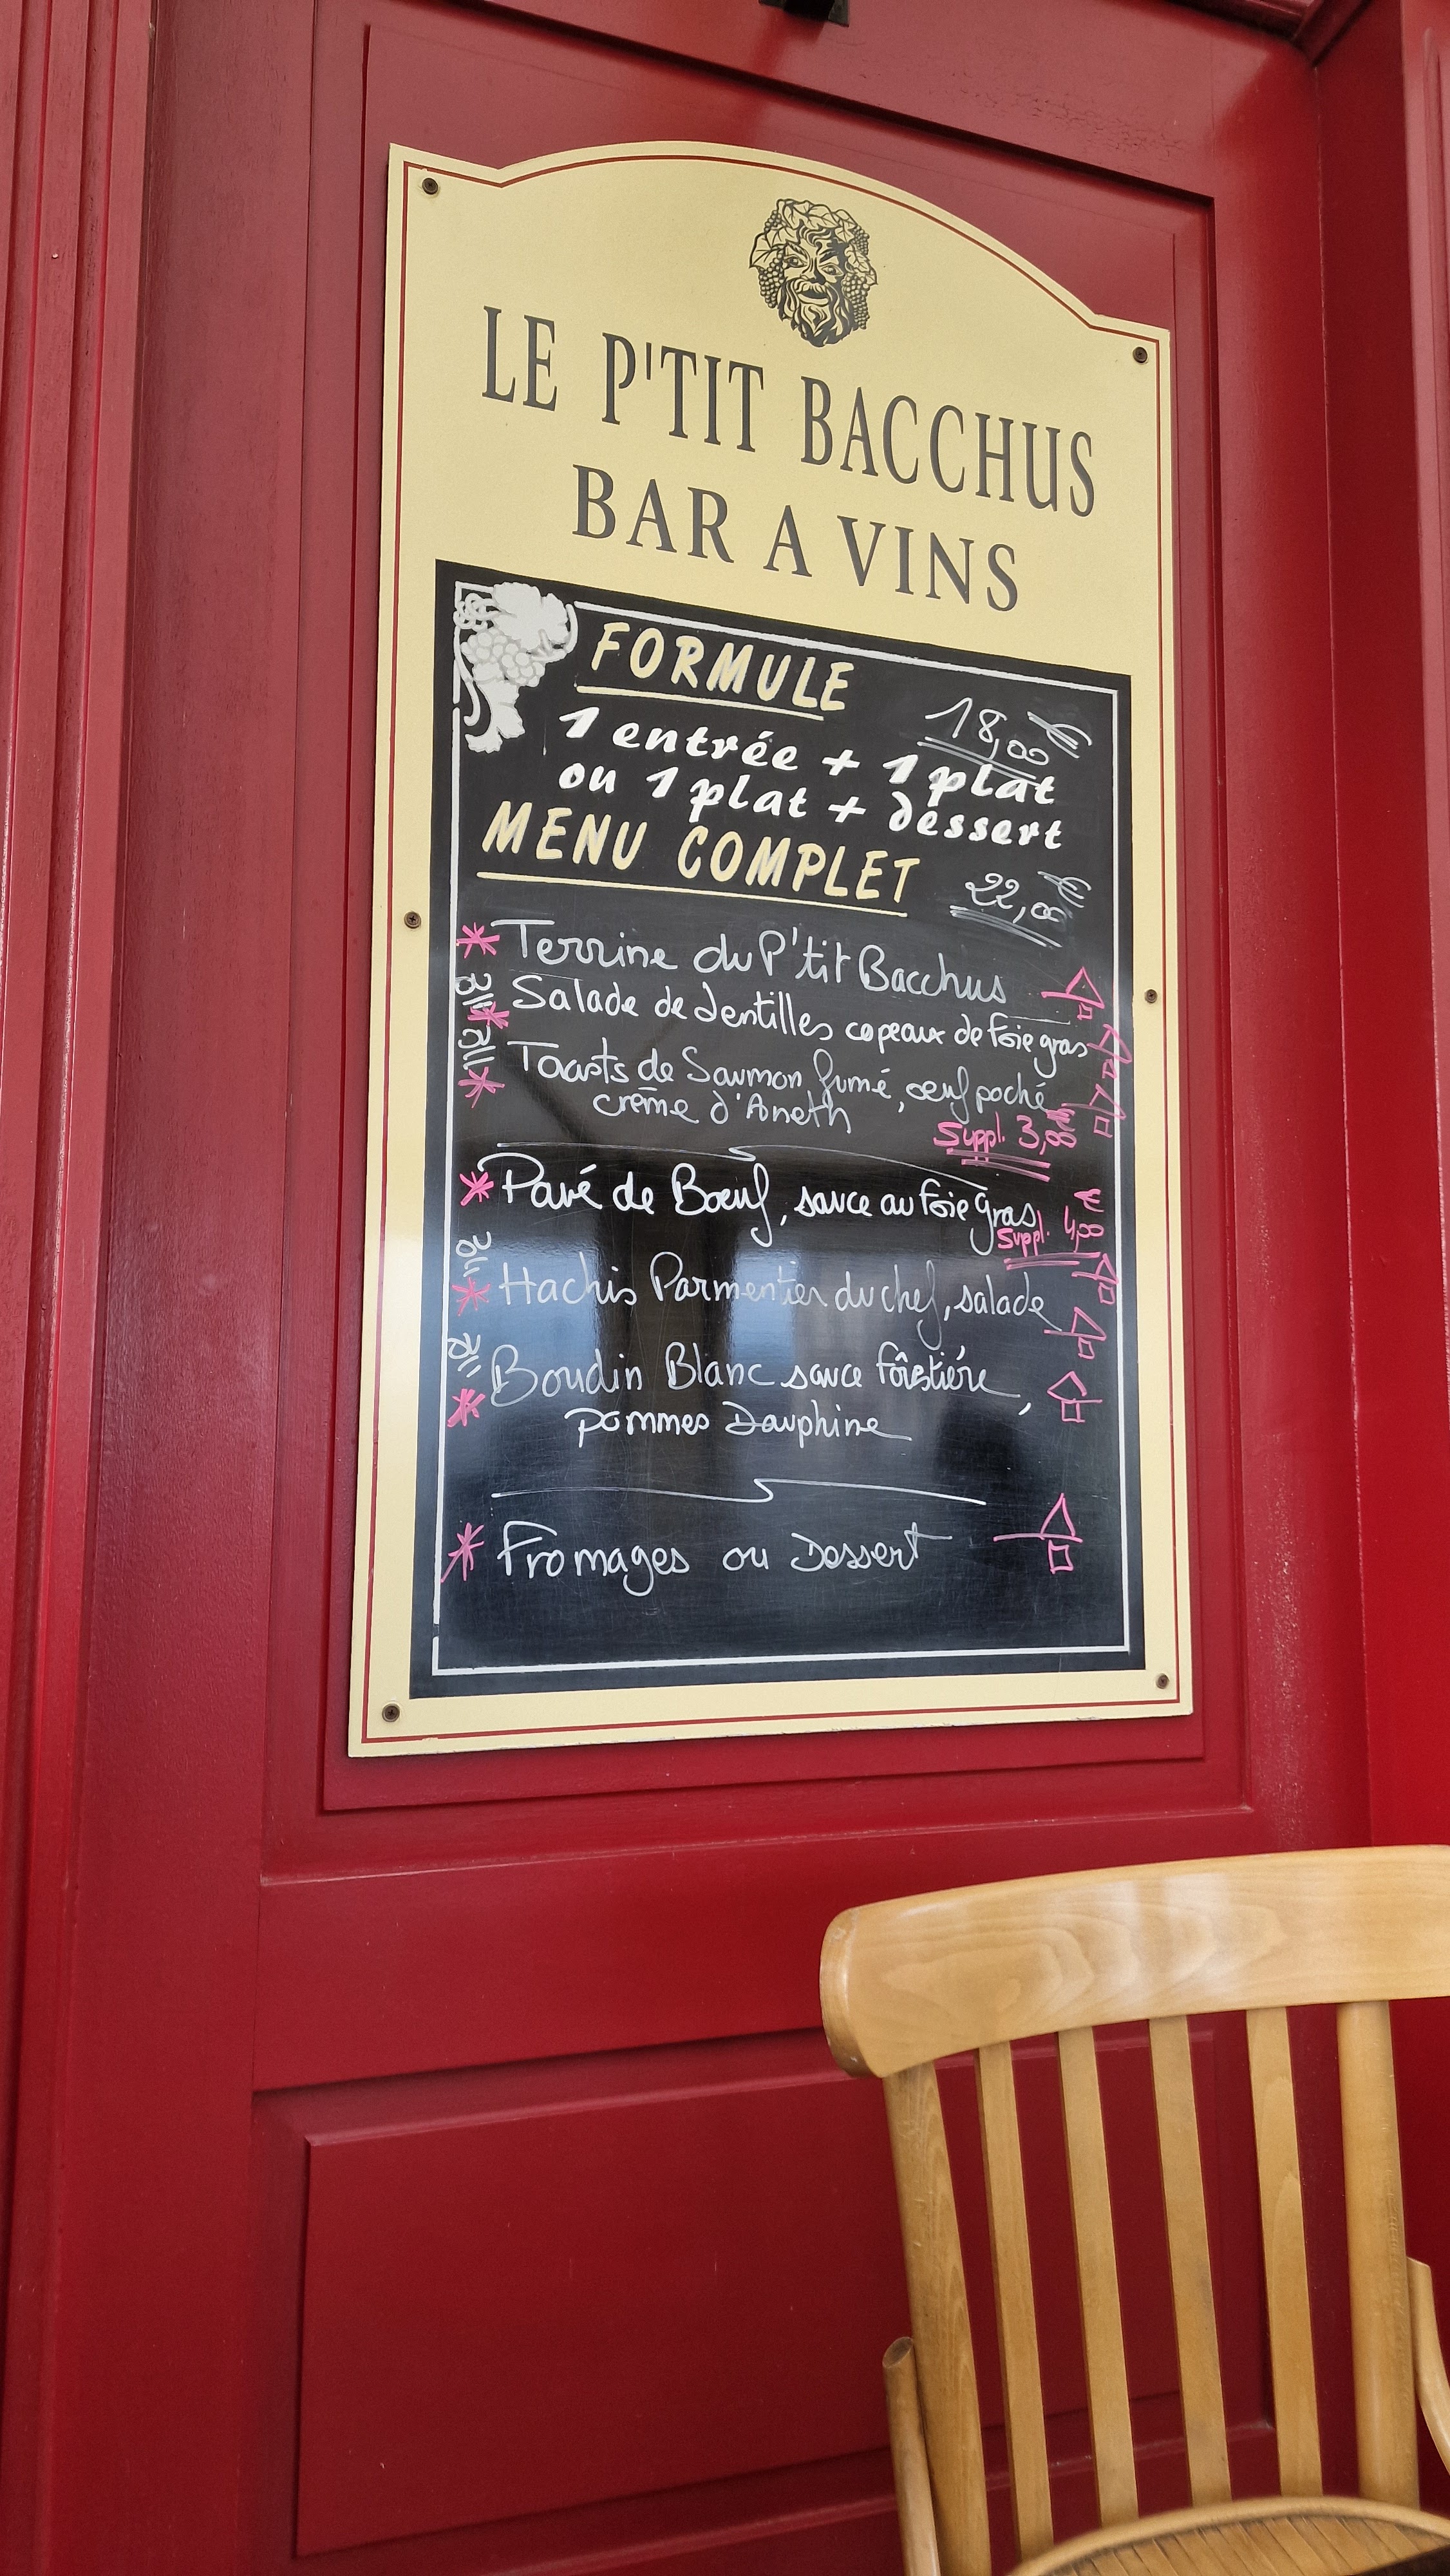 LE P'TIT BACCHUS
BAR A VINS
FORMULE
18,00 €
1 entrée + 1 plat
ou 1 plat + dessert
MENU COMPLET
22,00 €
Terrine du P'tit Bacchus
ou Salade de Lentilles copeaux de foie gras
ou Toasts de Saumon fumé, oeuf poché
crème d'Aneth
Suppl. 3,00 €
Pavé de Bœuf, sauce au foie gras
Suppl. 4,00 €
ou
Hachis Parmentier du chef, salade
ou
Boudin Blanc sauce forêstière,
pommes Dauphine
Fromages ou Dessert